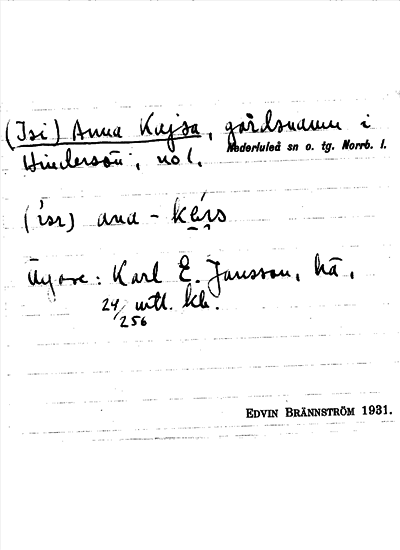 (Isi) Anna Kajsa, gårdsnamn i
Hindersön, no 1.
Nederluleå sn o. tg. Norrb. l.
(isɩ) ana - kẹ́i̯s
Ägare: Karl E. Jansson,
24/256 mtl. kr.
EDVIN BRÄNNSTRÖM 1931.